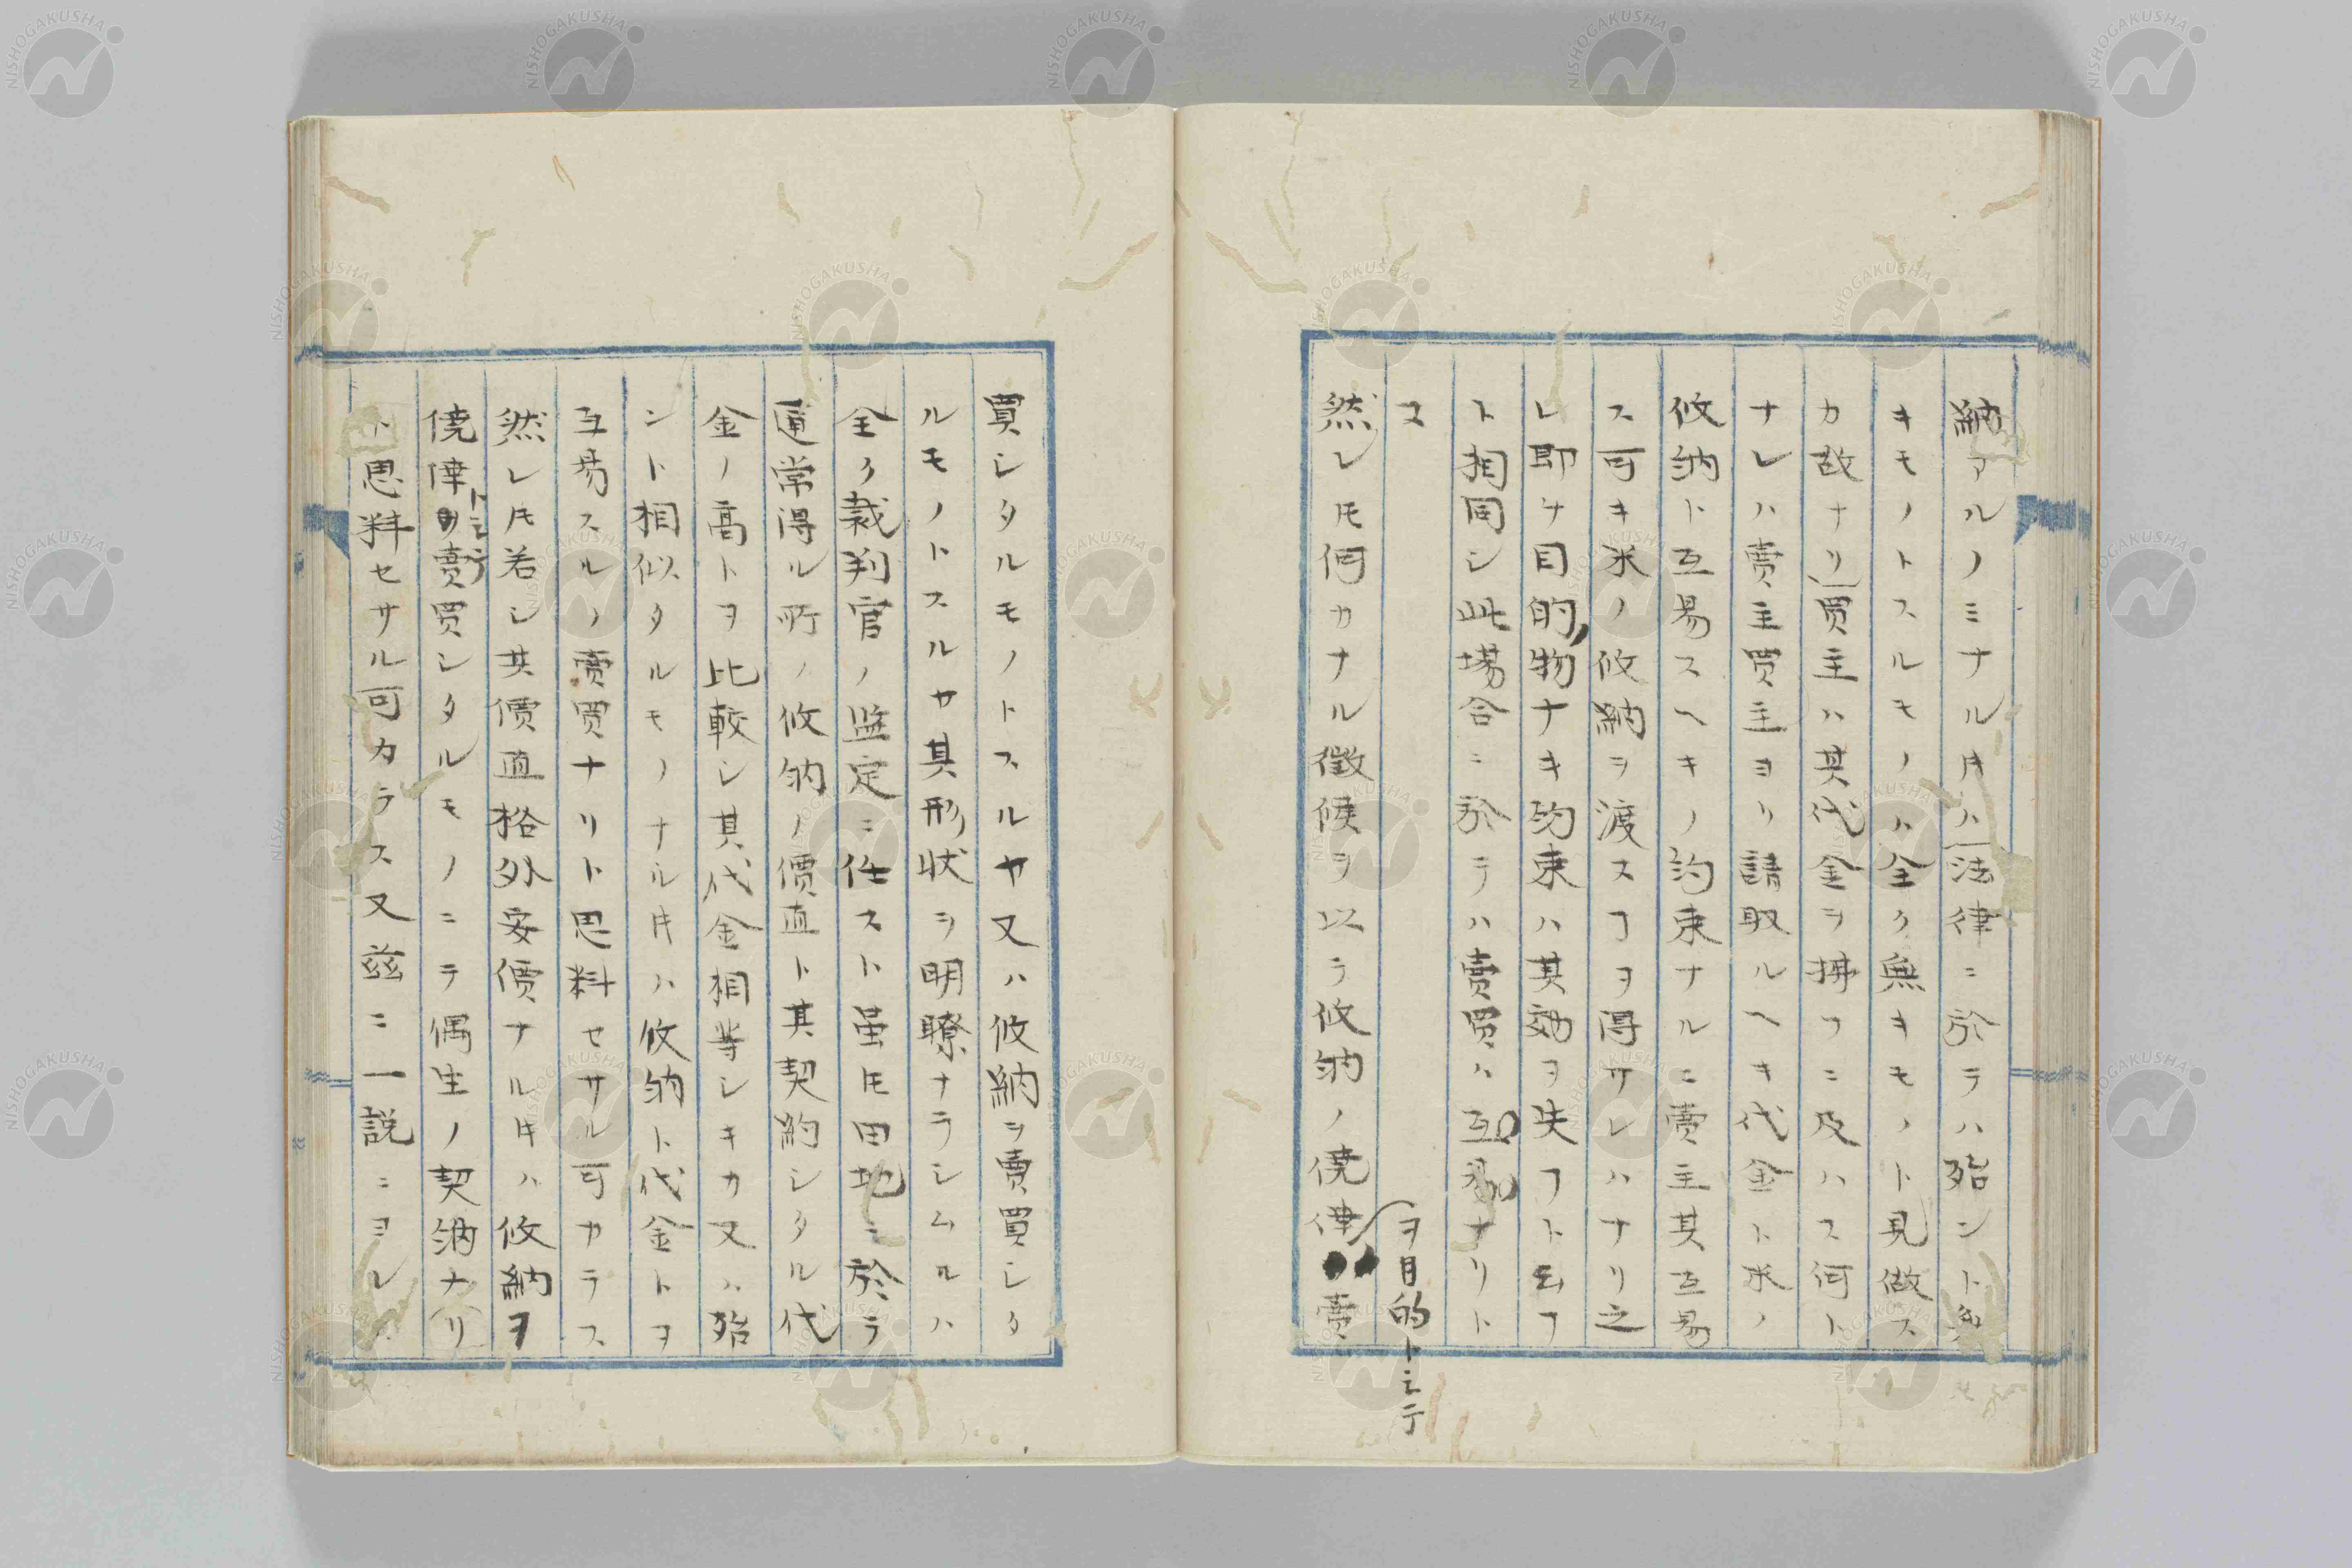 納アルノミナル片ハ法律ニ於テハ殆ント無
キモノトスルモノハ全ク無キモノト見做ス
カ故ナリ買主ハ其代金ヲ拂フニ及ハス何ト
ナレハ賣主買主ヨリ請取ルヘキ代金ト米ノ
收納ト互易スヘキノ約束ナルニ賣主其互易
ス可キ米ノ收納ヲ渡スヿヲ得サレハナリ之
レ即チ目的ノ物ナキ約束ハ其効ヲ失フト云フ
ト相同シ此場合ニ於テハ賣買ハ互易ナリト
ス
ヲ目的トシテ
然レ𪜈何カナル徴候ヲ以テ收納ノ僥倖賣
買シタルモノトスルヤ又ハ收納ヲ賣買シタ
ルモノトスルヤ其形状ヲ明瞭ナラシムルハ
全ク裁判官ノ監定ニ任スト虽𪜈田地ニ於テ
通常得ル所ノ收納ノ價直ト其契約シタル代
金ノ高トヲ比較シ其代金相等シキカ又ハ殆
ント相似タルモノナル片ハ收納ト代金トヲ
互易スルノ賣買ナリト思料セサル可カラス
然レ𪜈若シ其價直格外安價ナル片ハ收納ヲ
僥倖トシテ賣買シタルモノニテ偶生ノ契納ナリ
ト思料セサル可カラス又茲ニ一説ニヨレ
NISHOGAKUSHA